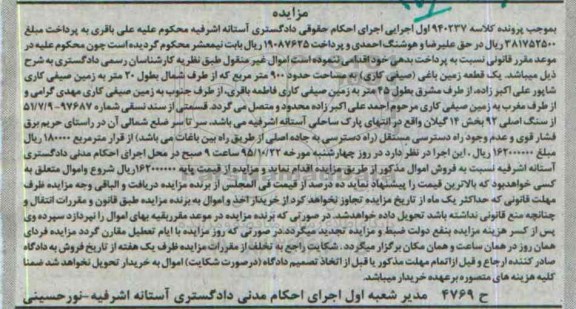 مزایده
بموجب پرونده کلاسه ۹۴۰۲۳۷ اول اجرایی اجرای احکام حقوقی دادگستری آستانه اشرفیه محکوم علیه علی باقری به پرداخت مبلغ
۳۸۱۷۵۲۵۰۰ ریال در حق علیرضا و هوشنگ احمدی و پرداخت ۱۹۰۸۷۶۲۵ ریال بابت نیمعشر محکوم گردیده است چون محکوم علیه در
موعد مقرر قانونی نسبت به پرداخت بدهی خود اقدامی ننموده است اموال غیر منقول طبق نظریه کارشناسان رسمی دادگستری به شرح
ذیل میباشد. یک قطعه زمین باغی (صیفی کاری) به مساحت حدود ۹۰۰ متر مربع که از طرف شمال بطول ۲۰ متر به زمین صیفی کاری
شاپور علی اکبر زاده، از طرف مشرق بطول ۴۵ متر به زمین صیفی کاری فاطمه باقری، از طرف جنوب به زمین صیفی کاری مهدی گرامی و
از طرف مغرب به زمین صیفی کاری مرحوم احمد علی اکبر زاده محدود و متصل می گردد. قسمتی از سند نسقی شماره ۹۷۶۸۷-۵۱/۷/۹
از سنگ اصلی ۹۲ بخش ۱۴ گیلان واقع در انتهای پارک ساحلی آستانه اشرفیه می باشد، سر تا سر ضلع شمالی آن در راستای حریم برق
فشار قوی و عدم وجود راه دسترسی مستقل (راه دسترسی به جاده اصلی از طریق راه بین باغات می باشد) از قرار مترمربع ۱۸۰۰۰۰ ریال
مبلغ ۱۶۲۰۰۰۰۰۰ ریال . این اجرا در نظر دارد در روز چهارشنبه مورخه ۹۵/۱۰/۲۲ ساعت ۹ صبح در محل اجرای احکام مدنی دادگستری
آستانه اشرفیه نسبت به فروش اموال مذکور از طریق مزایده اقدام نماید و مزایده از قیمت پایه ۱۶۲۰۰۰۰۰۰ ریال شروع و اموال متعلق به
کسی خواهدبود که بالاترین قیمت را پیشنهاد نماید ده درصد از قیمت فی المجلس از برنده مزایده دریافت و الباقی وجه مزایده ظرف
مهلت قانونی که حداکثر یک ماه از تاریخ مزایده تجاوز نخواهد کرد از خریدار اخذ و اموال به برنده مزایده طبق قانون و مقررات انتقال و
چنانچه منع قانونی نداشته باشد تحویل داده خواهدشد. در صورتی که برنده مزایده در موعد مقرربقیه بهای اموال را نپردازد سپرده وی
پس از کسر هزینه مزایده بنفع دولت ضبط و مزایده تجدید میگردد.در صورتی که روز مزایده با ایام تعطیل مقارن گردد مزایده فردای
همان روز در همان ساعت و همان مکان برگزار میگردد . شکایت راجع به تخلف از مقررات مزایده ظرف یک هفته از تاریخ فروش به دادگاه
صادر کننده ارجاع و قبل ازاتمام مهلت مذکور یا قبل از اتخاذ تصمیم دادگاه (درصورت شکایت) اموال به خریدار تحویل نخواهد شد ضمنا
کلیه هزینه های متصوره برعهده خریدار میباشد.
ح ۴۷۶۹ مدیر شعبه اول اجرای احکام مدنی دادگستری آستانه اشرفیه-نورحسینی